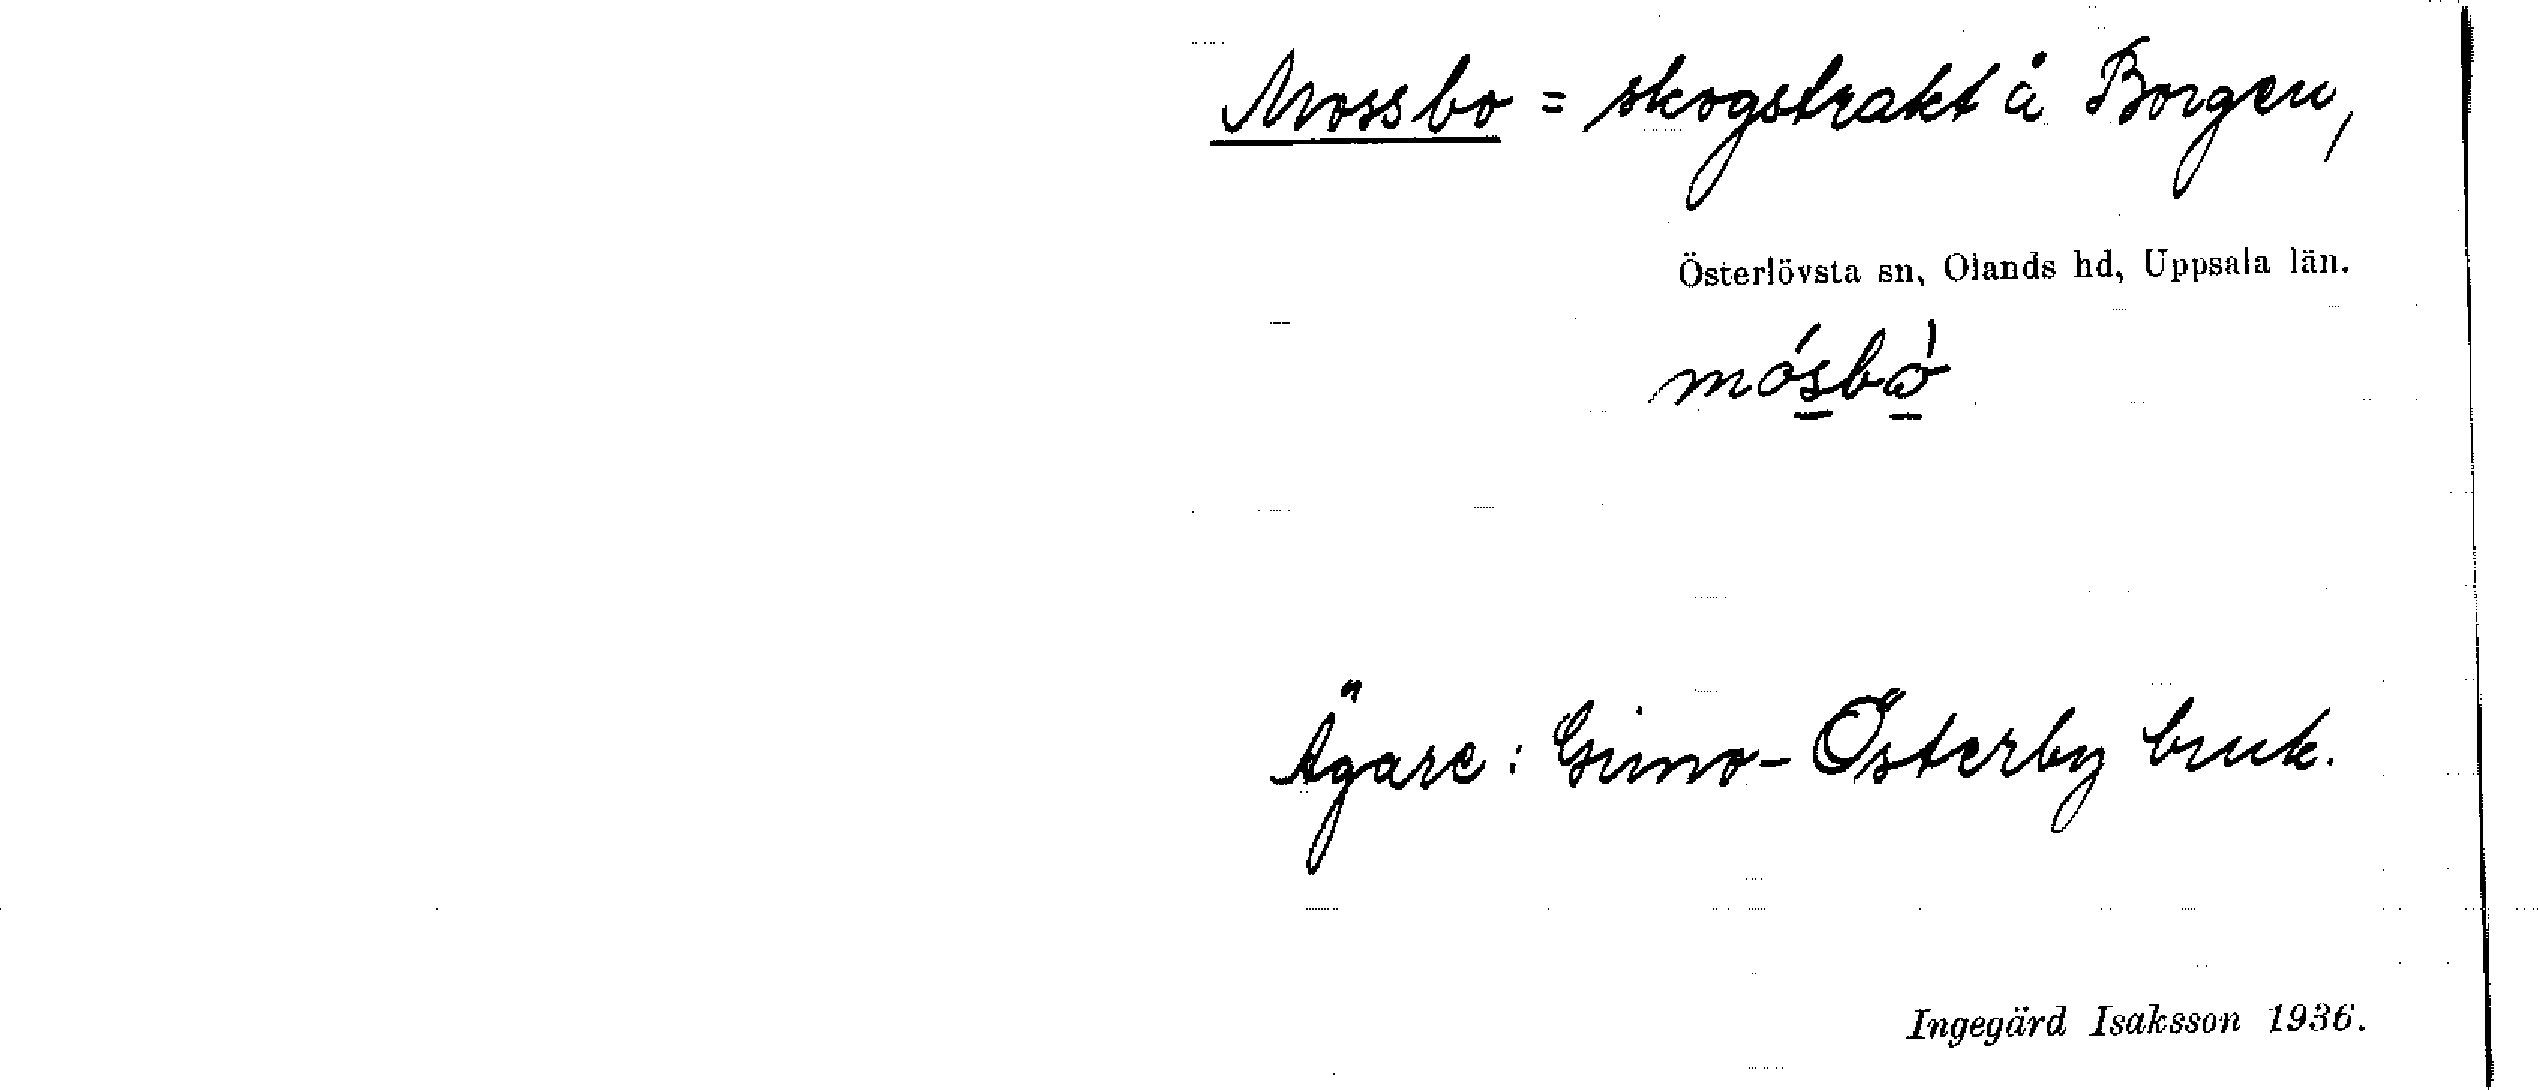 Mossbo = skogstrakt å Borgen,
Österlövsta sn, Olands hd, Uppsala län.
mósbò
Ägare: Gimo-Österby bruk.
Ingegärd Isaksson 1936.